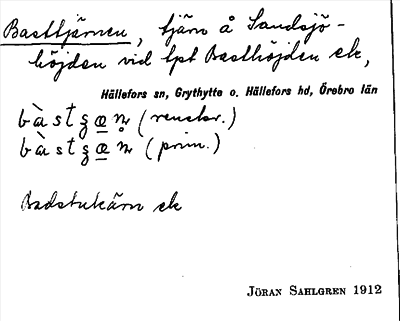 Basttjärnen, tjärn å Sandsjö-
höjden vid lpt Basthöjden ek,
Hällefors sn, Grythytte o. Hällefors hd, Örebro län
(renskr.)
(prim.)
Badstukärn ek
JÖRAN SAHLGREN 1912